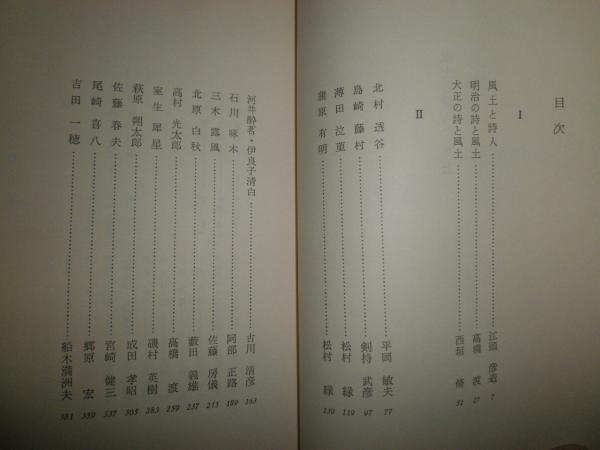 目次
I
風土と詩人 江頭彦造 7
明治の詩と風土 高橋渡 27
大正の詩と風土 西垣脩 51
II
北村透谷 平岡敏夫 77
島崎藤村 剣持武彦 97
薄田泣菫 松村緑 119
蒲原有明 松村緑 139
河井酔茗・伊良子清白 古川清彦 163
石川啄木 阿部正路 189
三木露風 佐藤房儀 213
北原白秋 藪田義雄 237
高村光太郎 高橋渡 259
室生犀星 磯村英樹 283
萩原朔太郎 成田孝昭 305
佐藤春夫 宮崎健三 337
尾崎喜八 郷原宏 359
吉田一穂 船木満洲夫 381